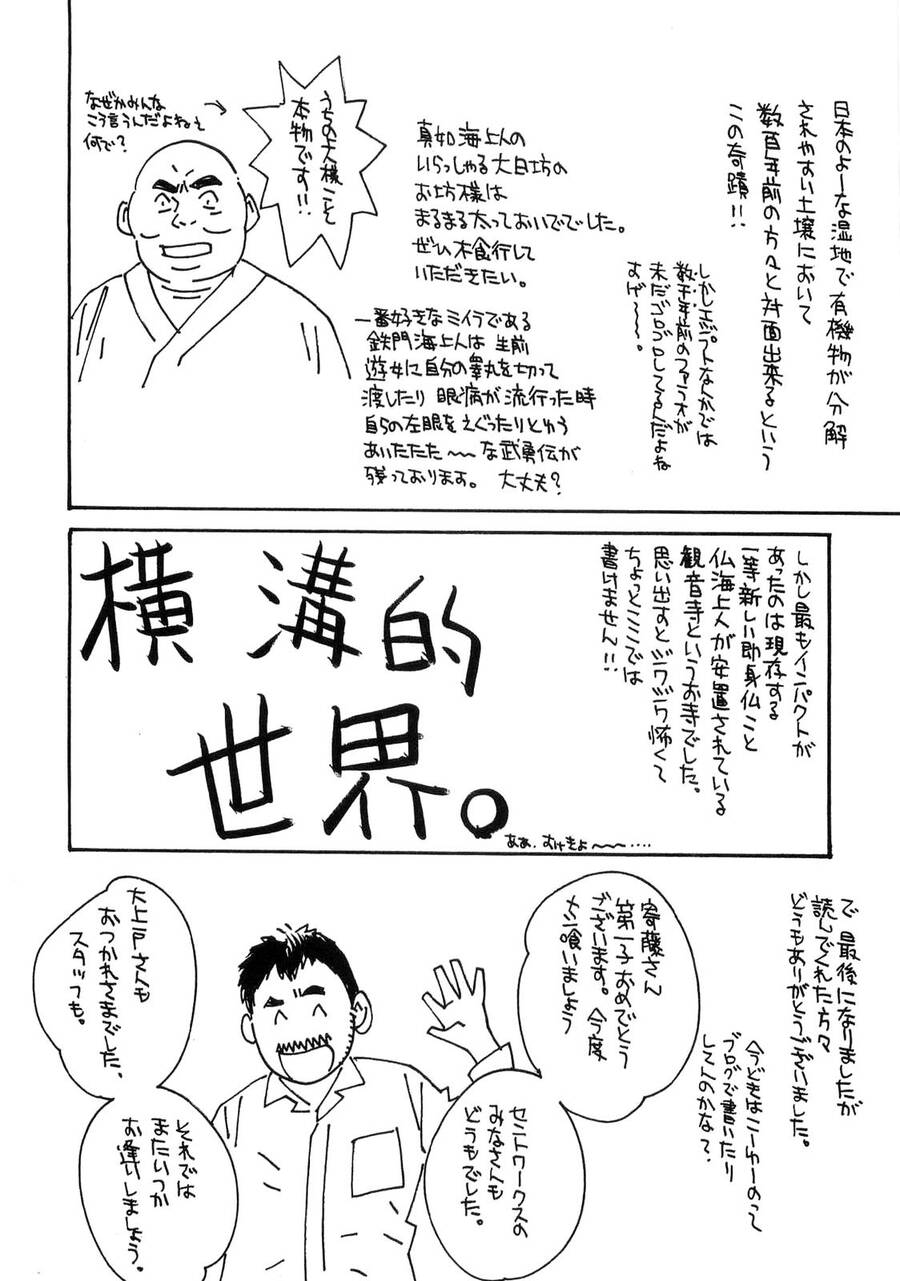 日本のよーな湿地で有機物が分解
されやすい土壌において
数百年前の方々と対面出来るという
この奇蹟!!
しかしエジプトなんかでは
数千年前のファラオが
未だゴロゴロしてるんだよね
すげ〜〜〜。
真如海上人の
いらっしゃる大日坊の
お坊様は
まるまる太っておいででした。
ぜひ木食行して
いただきたい。
うちの大様こそ
本物です!!
なぜかみんな
こう言うんだよねえ
何で?
一番好きなミイラである
鉄門海上人は 生前
遊女に自分の睾丸を切って
渡したり 眼病が流行った時
自らの左眼をえぐったりとゆう
あいたたた〜〜な武勇伝が
残っております。 大丈夫?
しかし最もインパクトが
あったのは現存する
一等新しい即身仏こと
仏海上人が安置されている
観音寺というお寺でした。
思い出すとゾワゾワ怖くて
ちょっとここでは
書けません!!
横溝的
世界。
ああ、おけきよ〜〜‥‥
で 最後になりましたが
読んでくれた方々
どうもありがとうございました。
今どきはこーゆーのって
ブログで書いたり
してんのかな?
寄藤さん
第一子おめでとう
ございます。今度
メシ喰いましょう
セントワークスの
みなさんも
どうもでした。
大上戸さんも
おつかれさまでした、
スタッフも。
それでは
またいつか
お逢いしましょう。